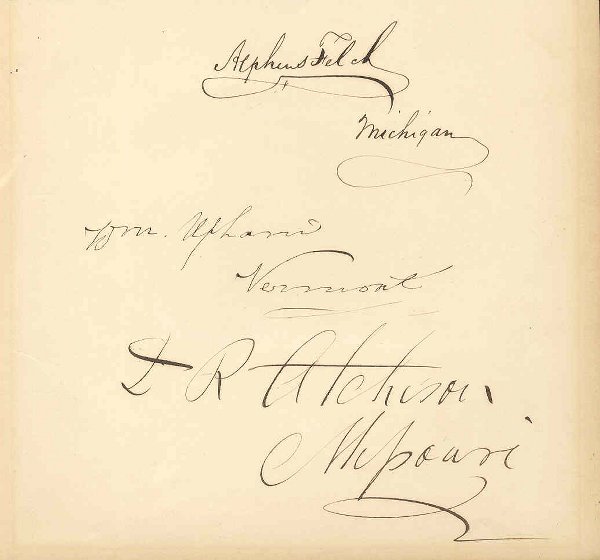 Alpheus Felch
Michigan
Wm. Upham
Vermont
D R Atchison
Missouri